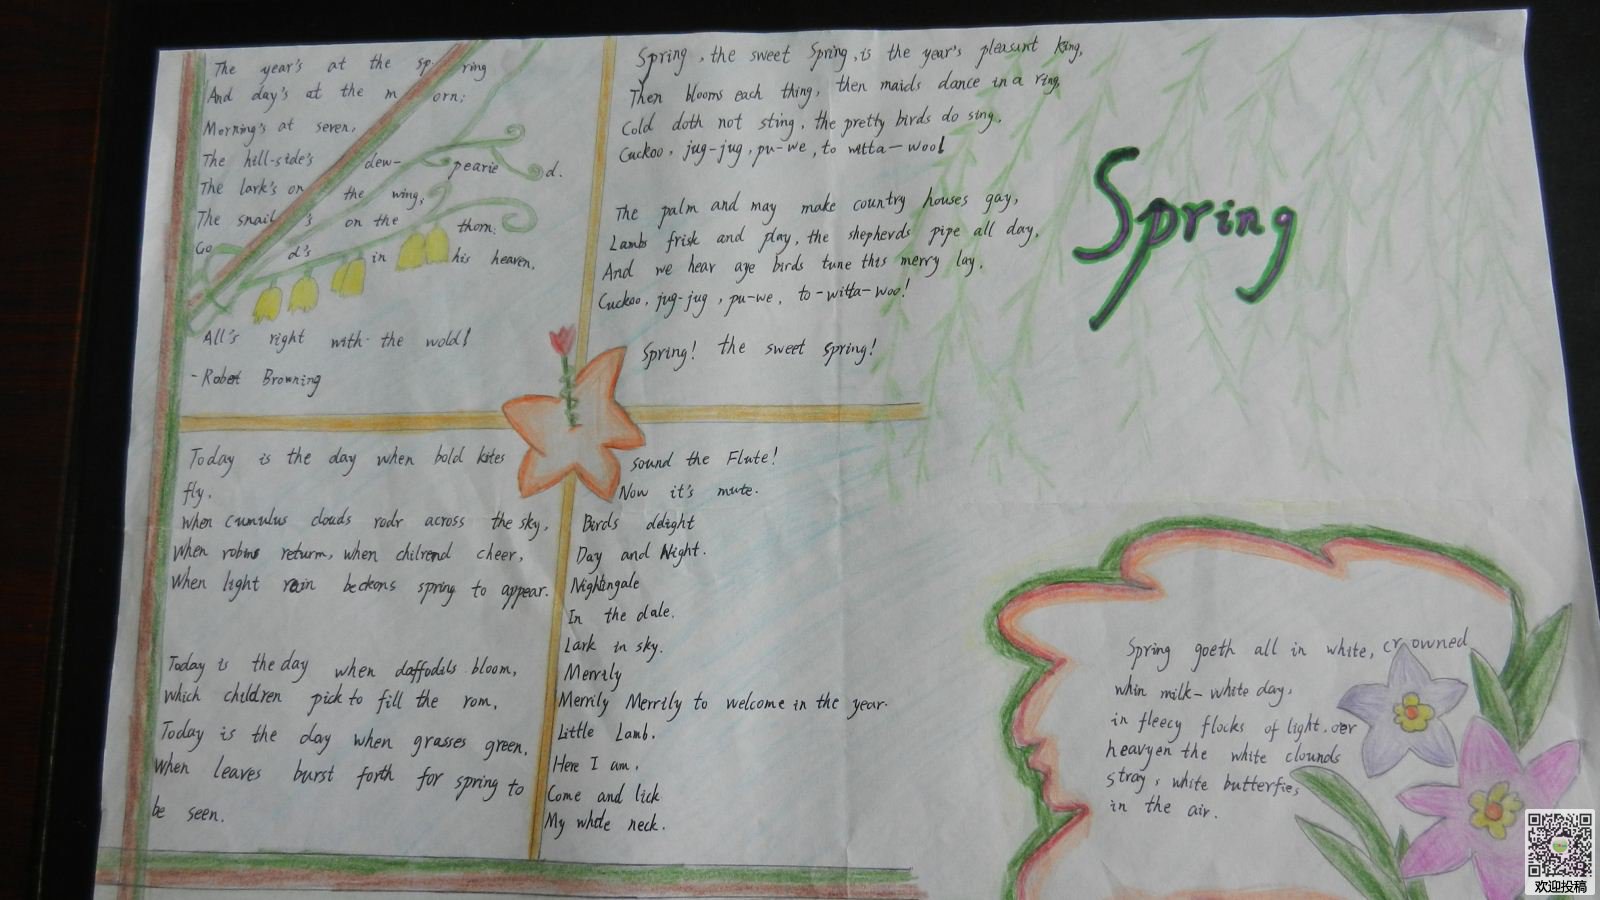 The year's at the spring
And day's at the morn;
Morning's at seven,
The hill-side's dew-pearied.
The lark's on the wing,
The snail's on the thorn;
God's in his heaven,
All's right with the wold!
- Robert Browning
Spring, the sweet Spring, is the year's pleasant king,
Then blooms each thing, then maids dance in a ring,
Cold doth not sting, the pretty birds do sing,
Cuckoo, jug-jug, pu-we, to witta-woo!
The palm and may make country houses gay,
Lambs frisk and play, the shepherds pipe all day,
And we hear aye birds tune this merry lay,
Cuckoo, jug-jug, pu-we, to-witta-woo!
Spring! the sweet spring!
Spring
Today is the day when bold kites
fly,
When cumulus clouds rodr across the sky,
When robins returm, when chilrend cheer,
When light rain beckons spring to appear.
Today is the day when daffodils bloom,
Which children pick to fill the rom,
Today is the day when grasses green,
When leaves burst forth for spring to
be seen.
sound the Flute!
Now it's mute.
Birds delight
Day and Night.
Nightingale
In the dale.
Lark in sky.
Merrily
Merrily Merrily to welcome in the year.
Little Lamb.
Here I am,
Come and lick
My white neck.
Spring goeth all in white, crowned
whin milk-white day,
in fleecy flocks of light, oer
heavyen the white clounds
stray, white butterfies
in the air.
欢迎投稿